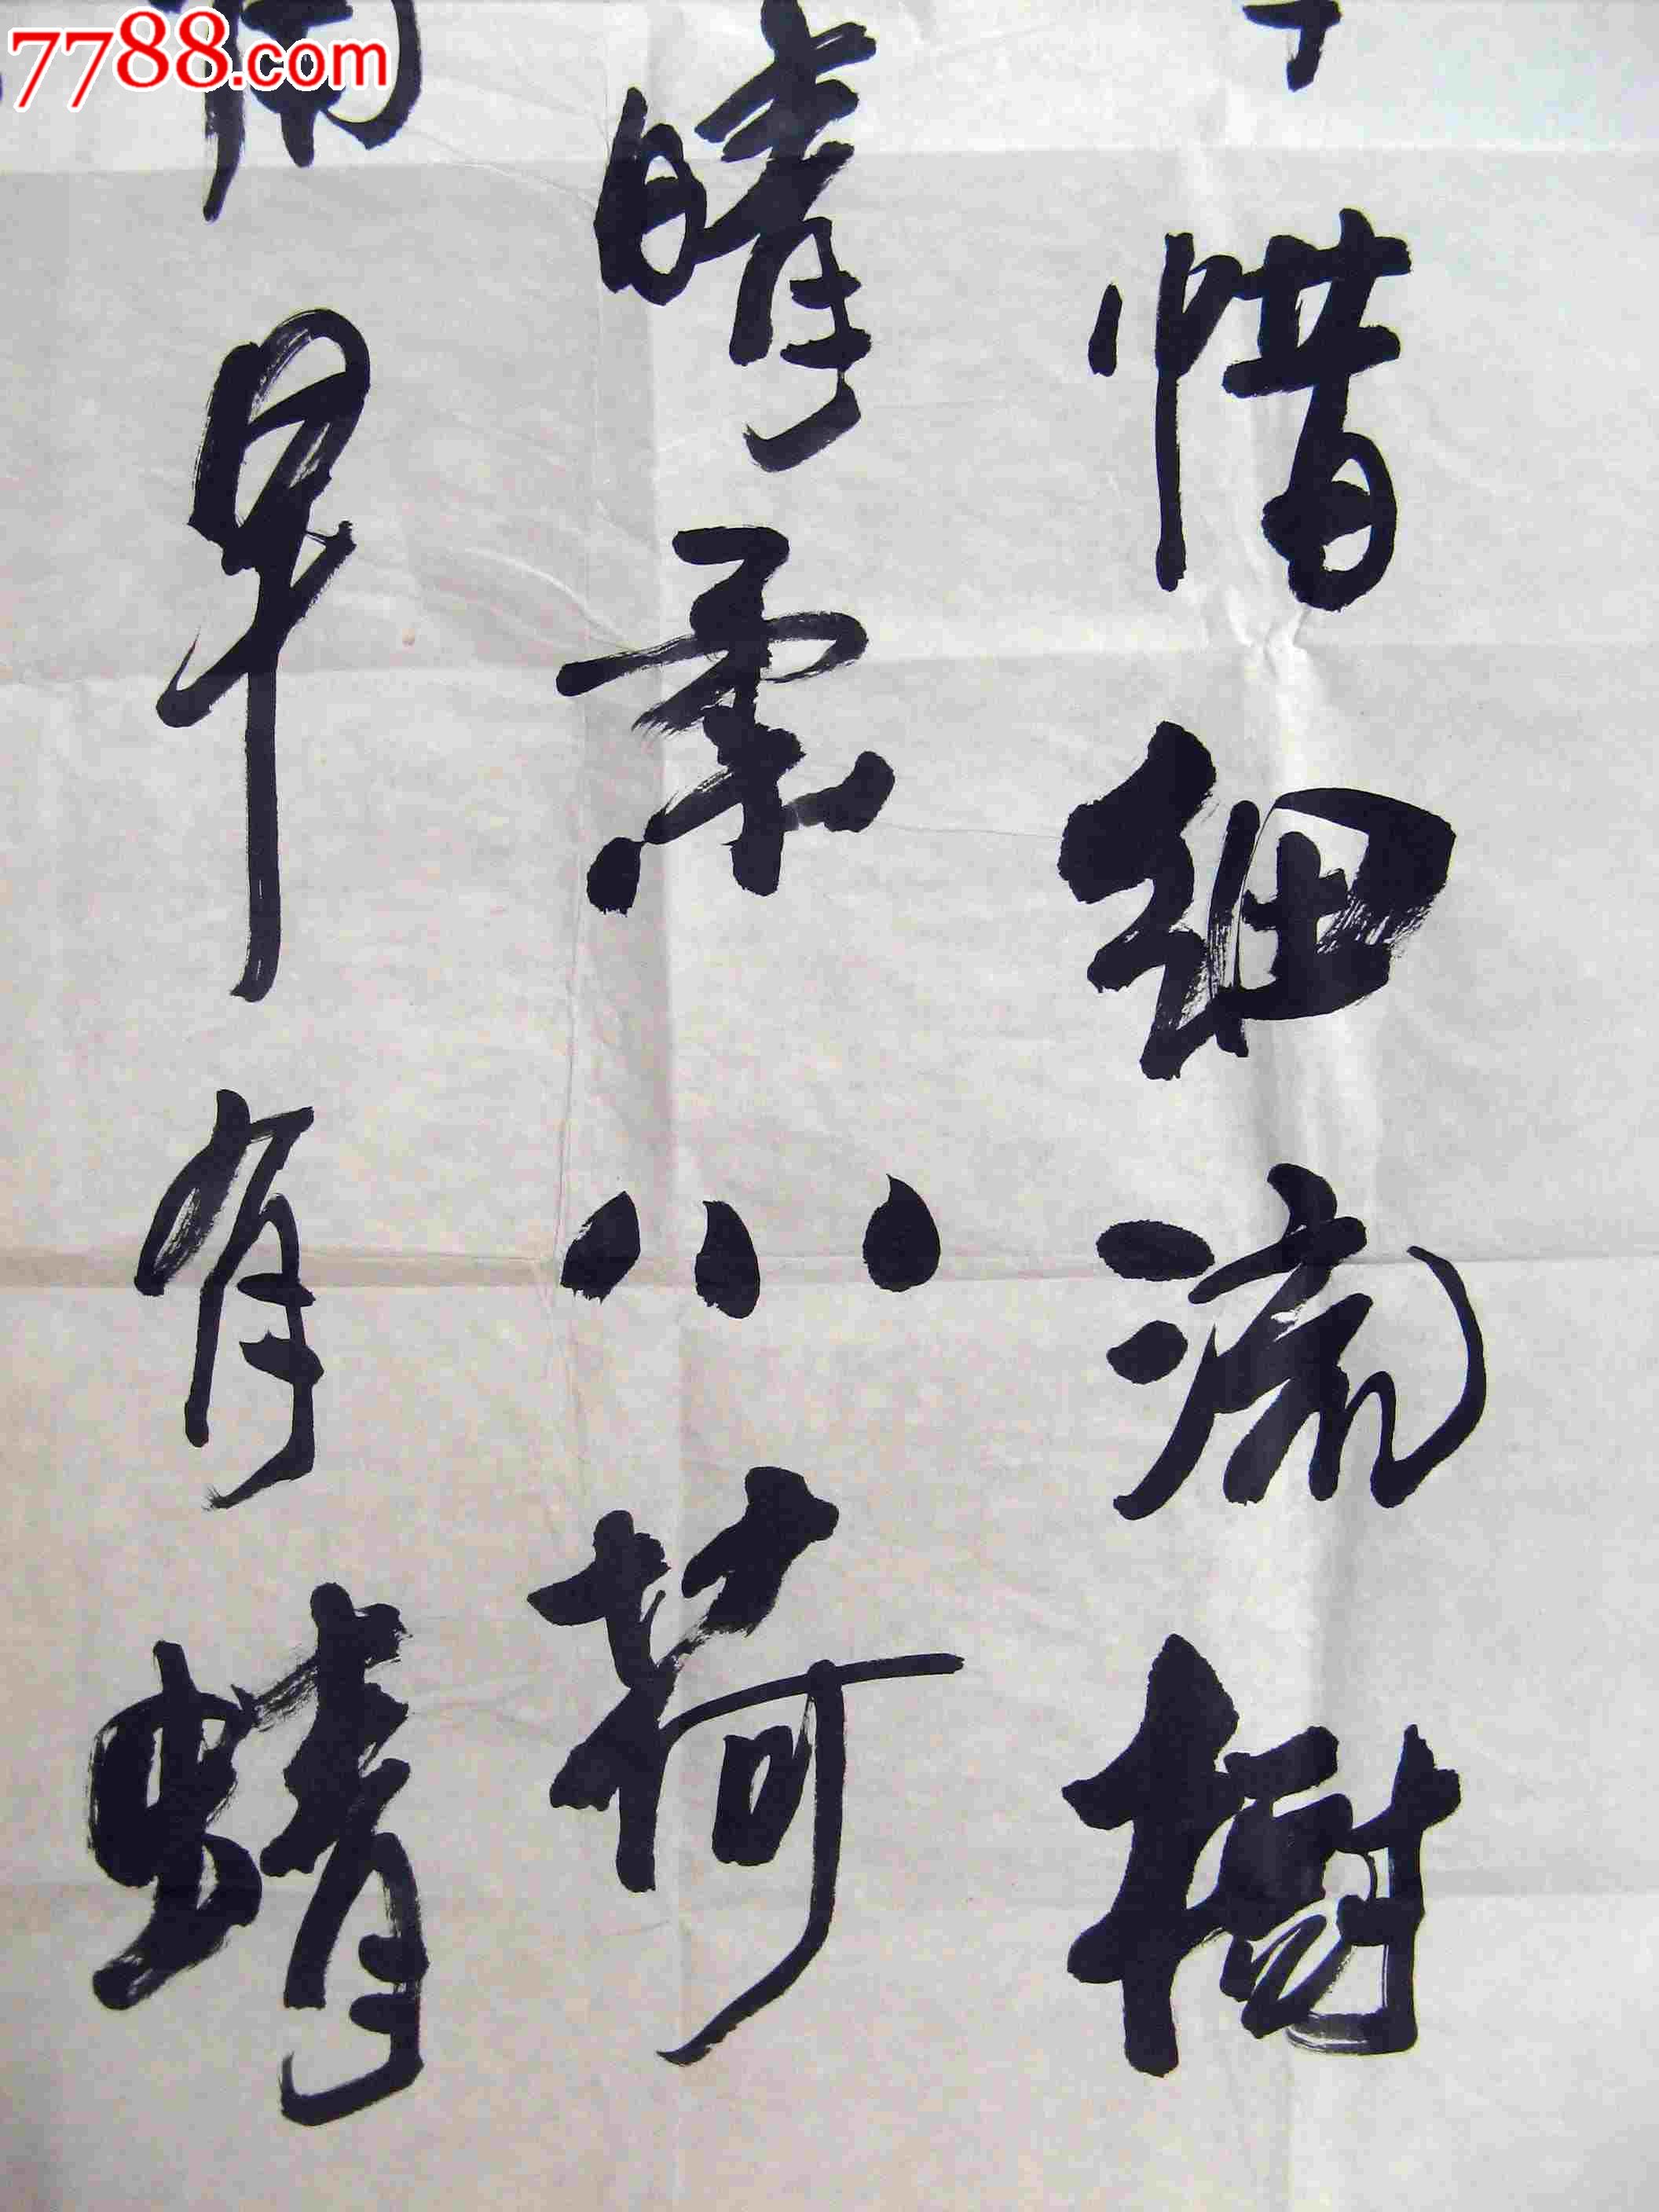 7788.com
惜細流樹
晴柔小荷
角早有蜻